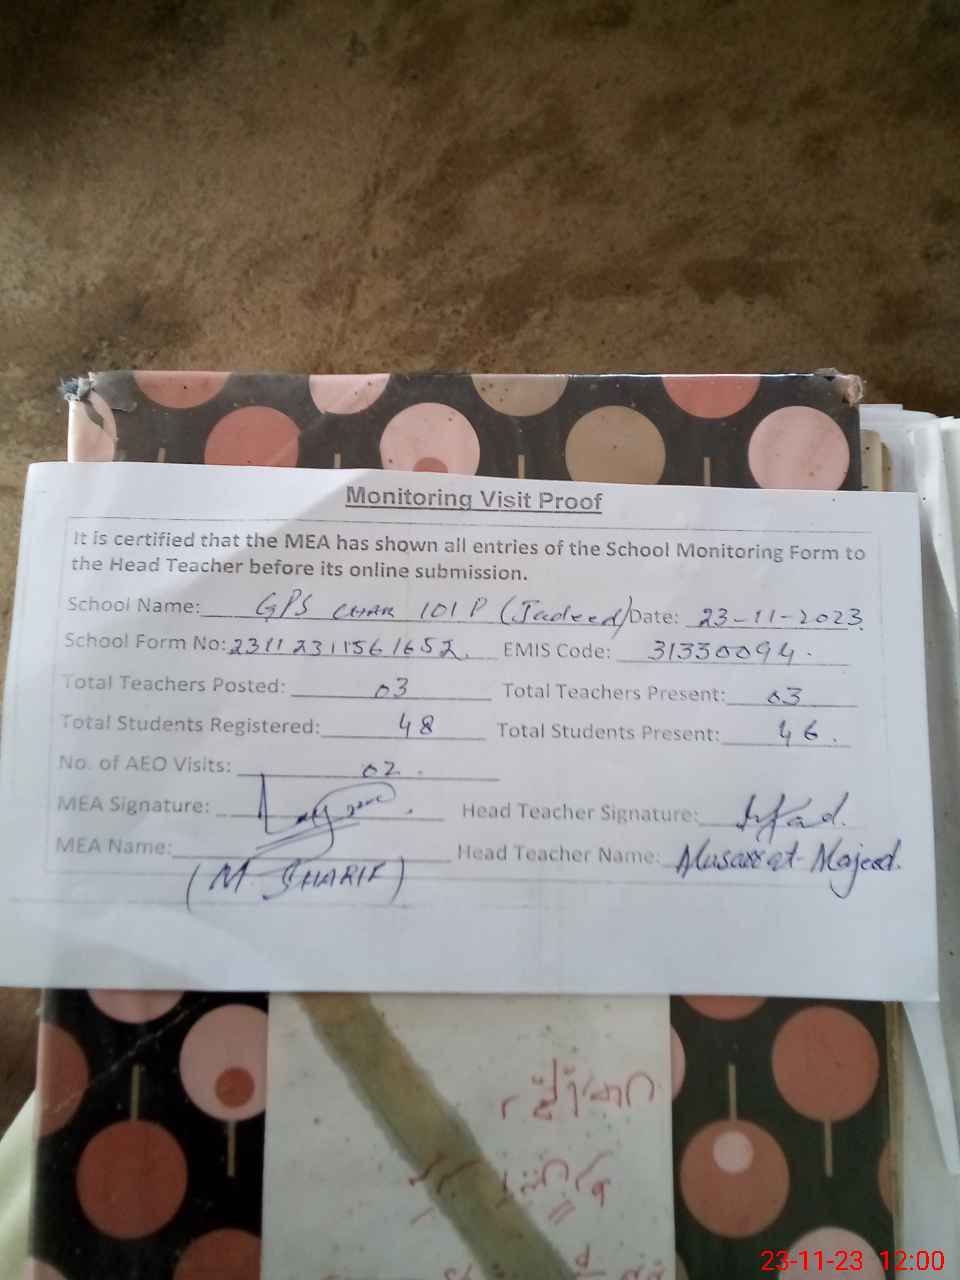 Monitoring Visit Proof
It is certified that the MEA has shown all entries of the School Monitoring Form to
the Head Teacher before its online submission.
School Name: GPS CHAK 101 P (Jadeed) Date: 23-11-2023
School Form No: 2311231156 1652. EMIS Code: 31330094.
Total Teachers Posted: 03 Total Teachers Present: 03
Total Students Registered: 48 Total Students Present: 46.
No. of AEO Visits: 02.
MEA Signature: Head Teacher Signature:
MEA Name: Head Teacher Name: Musarrat Majeed.
(M SHARIF)
23-11-23 12:00